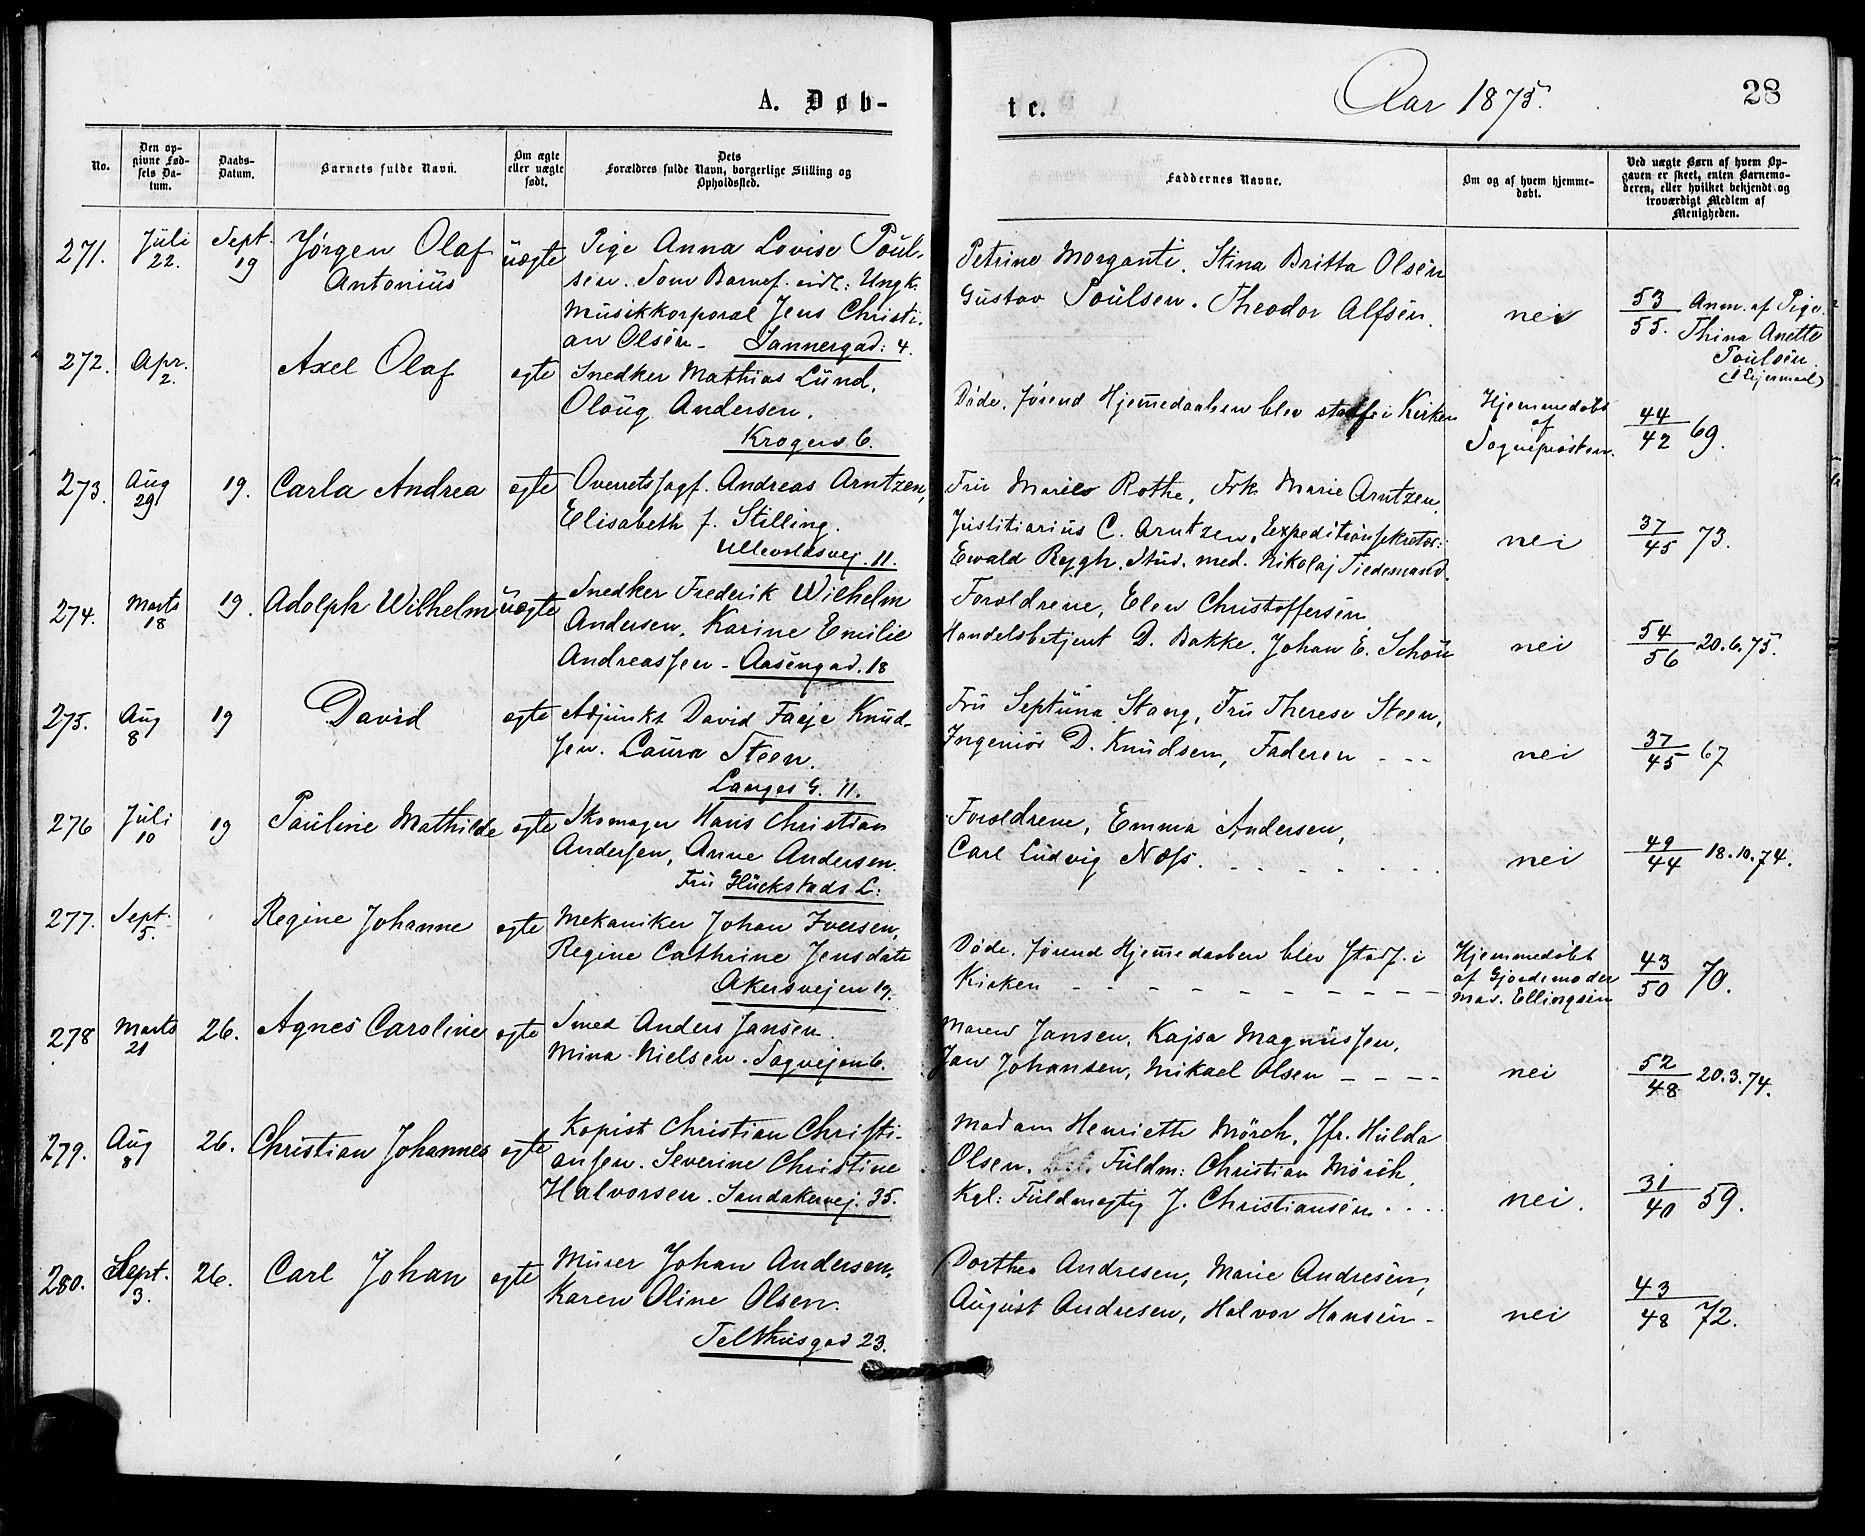 A. Døb-
te.
Aar 1875.
28
No.
Den op-
givne Fød-
sels Da-
tum.
Daabs-
Datum.
Barnets fulde Navn.
Om ægte
eller uægte
født.
Dets
Forældres fulde Navn, borgerlige Stilling og
Opholdssted.
Faddernes Navne.
Om og af hvem hjemme-
døbt.
Ved uægte Børn af hvem Op-
gaven er skeet, enten Barnemo-
deren, eller hvilket bekjendt og
troværdigt Medlem af
Menigheden.
271.
Juli
22.
Sept.
19
Jørgen Olaf
Antonius
uægte
Pige Anna Lovise Poul-
sen. Som Barnef. eidl: Ungk.
Musikkorporal Jens Christi-
an Olsen - Sannergad: 4.
Petrine Morganti. Stina Britta Olsen
Gustav Poulsen. Theodor Alfsen.
nei
53
55.
Anm. af Pige
Thina Anette
Poulsen
272.
Apr.
2.
Axel Olaf
ægte
Snedker Mathias Lund,
Olaug Andersen.
Krogens 6.
Døde, førend Hjemmedaaben blev stadf. i Kirken
Hjemmedøbt
af
Sogneprästen.
44
42 69.
273.
Aug
29
19.
Carla Andrea
ægte
Overretssagf. Andreas Arntzen,
Elisabeth f. Stilling.
Ullevoldsvej. 11.
Fru Maries Rothe, Frk. Marie Arntzen
Justitiarius C. Arntzen, Expeditionssekretær:
Ewald Rygh, Stud. med. Nikolaj Tidemand.
nei
37
45 73.
274.
Marts
18
19.
Adolph Wilhelm
uægte
Snedker Frederik Wilhelm
Andersen, Karine Emilie
Andreassen - Aasengad. 18
Forældrene, Elen Christoffersen,
Handelsbetjent D. Bakke, Johan E. Schou
nei
54
56 20.6.75.
275.
Aug
8
19
David
ægte
Adjunkt David Faeje Knud-
sen. Laura Steen.
Langes G. 11.
Fru Septima Stang, Fru Therese Steen,
Ingeniør D. Knudsen, Faderen - - -
nei
37
45 67
276
Juli
10
19
Pauline Mathilde
ægte
Skomager Hans Christian
Andersen, Anne Andersen.
Fru Glückstads L:
Forældrene, Emma Andersen,
Carl Ludvig Næss.
nei
49
44 18.10.74.
277.
Sept.
5.
Regine Johanne
ægte
Mekaniker Johan Iversen,
Regine Cathrine Jensdatr
Akersvejen 19.
Døde, førend Hjemmedaaben blev stadf. i
Kirken - - - - - - - - -
Hjemmedøbt
af Gjordemoder
Mad. Ellingsen
43
50 70.
278
Marts
21
26.
Agnes Caroline
ægte
Smed Anders Jansen.
Mina Nielsen. Sagvejen 6.
Maren Jansen, Kajsa Magnussen,
Jan Johansen, Mikael Olsen - - - -
nei
52
48 20.3.74.
279.
Aug
8
26.
Christian Johannes
ægte
Kopist Christian Christi-
ansen. Severine Christine
Halvorsen. Sandakervej. 35.
Madam Henriette Mörch, Jfr. Hulda
Olsen. Fuldm: Christian Mörch,
Kgl: Fuldmægtig J. Christiansen . . . .
nei.
31
40 59.
280.
Sept.
3.
26.
Carl Johan
ægte
Murer Johan Andersen,
Karen Oline Olsen.
Telthusgad 23.
Dorthea Andresen, Marie Andresen,
August Andresen, Halvor Hansen -
nei
43
48 72.